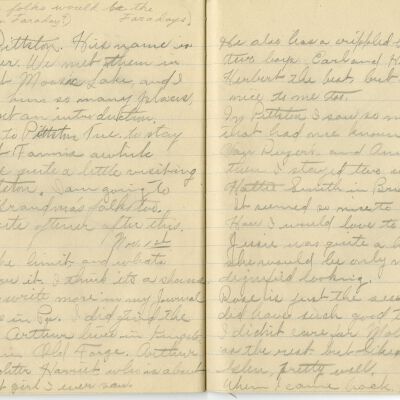 folks would be the
Faraday?) Faradays)
Pittston. His name is
er. We met them in
t Moosic Lake, and I
hum so many places,
t an introduction.
to Pittston Tue. to stay
t Fannie awhile
e quite a little visiting
ttston, I am going to
Grandma's folks too.
ite oftener after this.
Nov. 1st
he limit and what's
it. I think it's a shame
write more in my Journal
s in Pa. I did find the
Arthur lives in
in Old Forge. Arthur
Harriet who is about
t girl I ever saw.
He also has a crippled
two boys. Carl and
Herbert the best but
nice to me too.
In Pittston I saw so m
that had once known
and Ann
then I stayed two
Hattie Smith in
It seemed so
How I would love to
Jessie was quite a
She would be only
dignified looking.
Rose is just the same
did have such good t
I didn't care for
as the rest but liked
Helen, pretty well,
When I came back